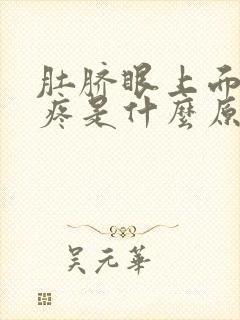 肚脐眼上面
疼是什麼原
吴元華